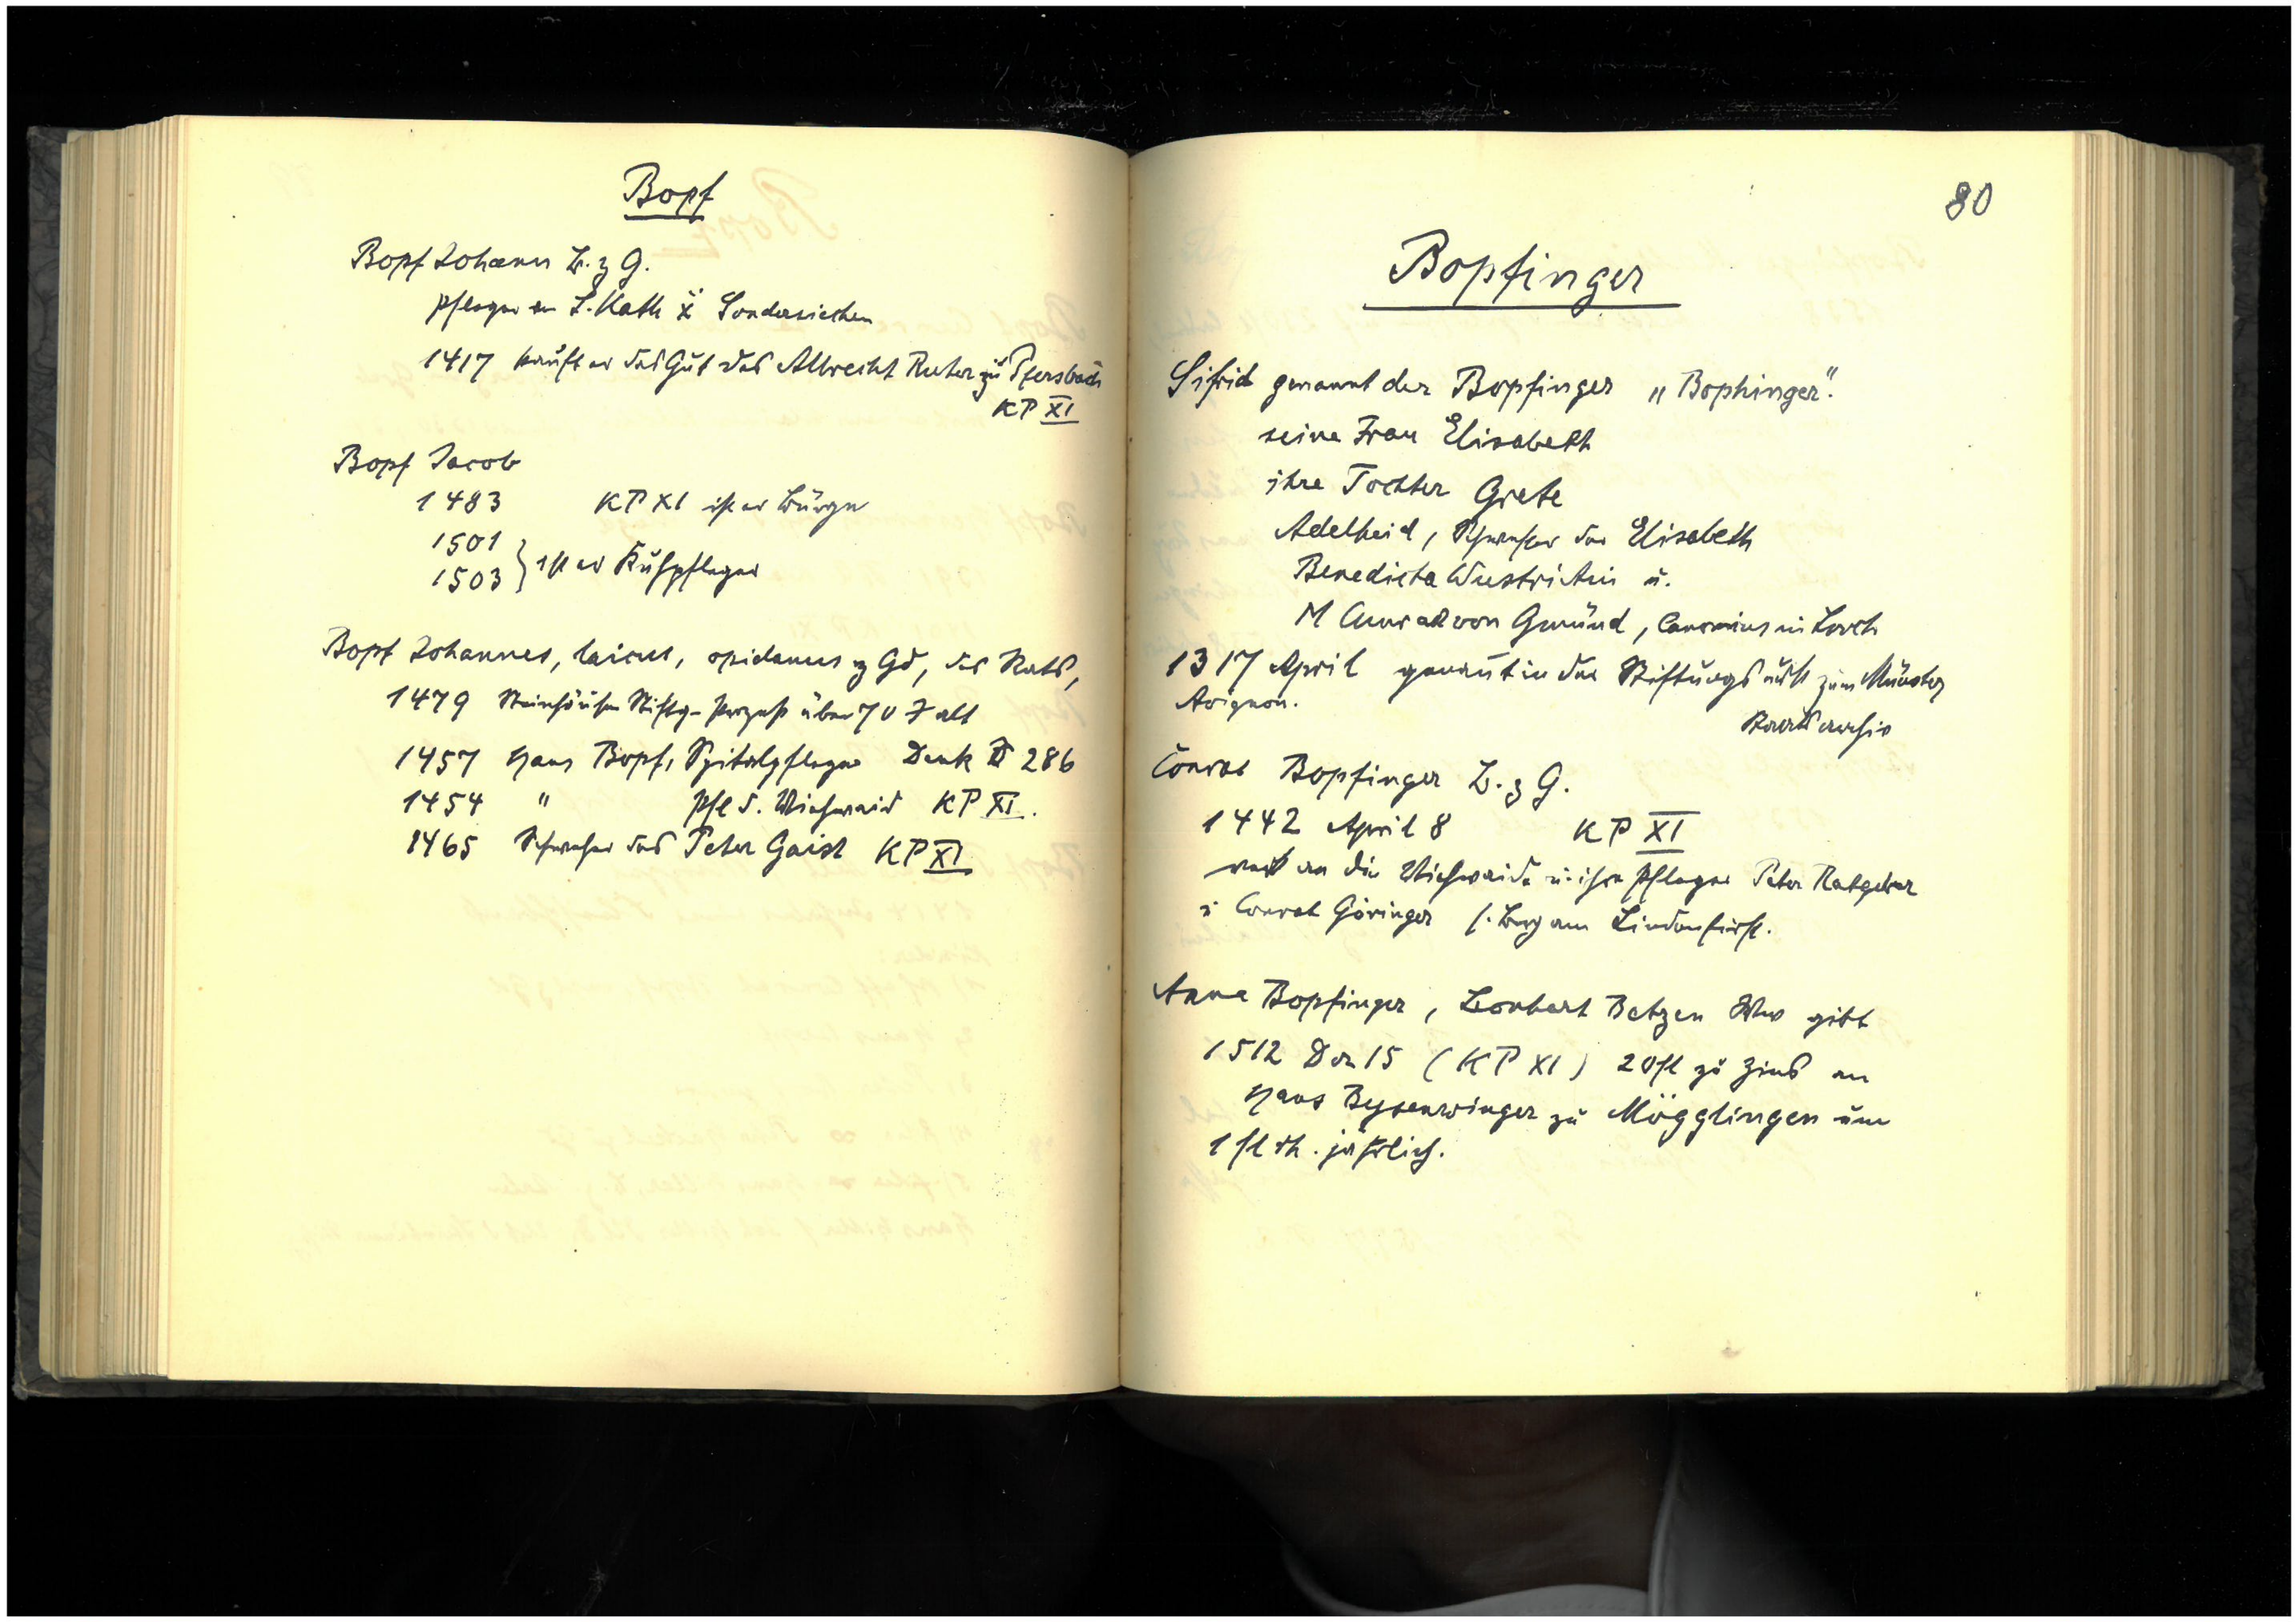 Bopf
Bopf Johann B. z G.
Pfleger an S. Kath u Sondersiechen
1417 kauft er das Gut des Albrecht Ruter zu Pfersbach
KP XI
Bopf Jacob
1483 KP XI ist er Bürge
1501
1503 } ist er Kuhpfleger
Bopf Johannes, laicus, opidanus z Gd, des Rats,
1479 Steinhäuser Stiftg-Prozess über 70 J alt
1457 Hans Bopf, Spitalpfleger Denk 286
1454 " Pfl d. Viehwaid KP XI.
1465 Schweher des Peter Gaist KP XI
80
Bopfinger
Sifrid genannt der Bopfinger „Bophinger".
seine Frau Elisabeth
ihre Tochter Grete
Adelheid, Schwester der Elisabeth
Benedicta u.
M Cunrad von Gmünd, Canonicus in Lorch
1317 April genannt in der Stiftungs zum Münster
Avignon.
Staatsarchiv
Conrat Bopfinger B. z G.
1442 April 8 KP XI
verk an die Viehwaide u. ihre Pfleger Peter Ratgeber
u Conrat Göringer s. Berg am Lindenfirst.
Anna Bopfinger, Lenhart Betzen Wwe gibt
1512 Dez 15 (KP XI) 20 fl zu Zins an
Hans Beysenwinger zu Mögglingen um
1 fl rh. jährlich.